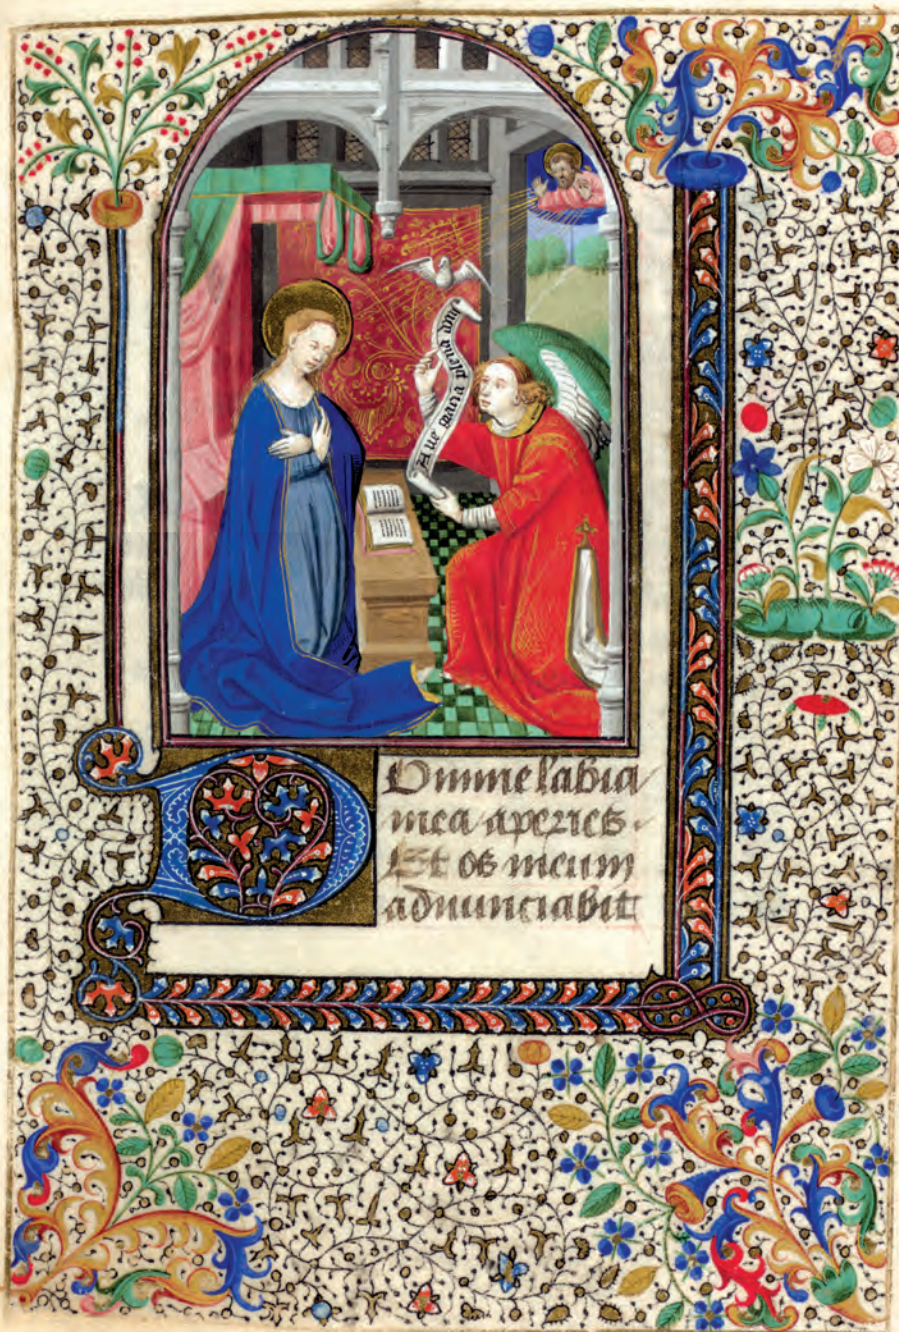 Aue Maria plena
Domine labia
mea aperies.
Et os meum
adnunciabit